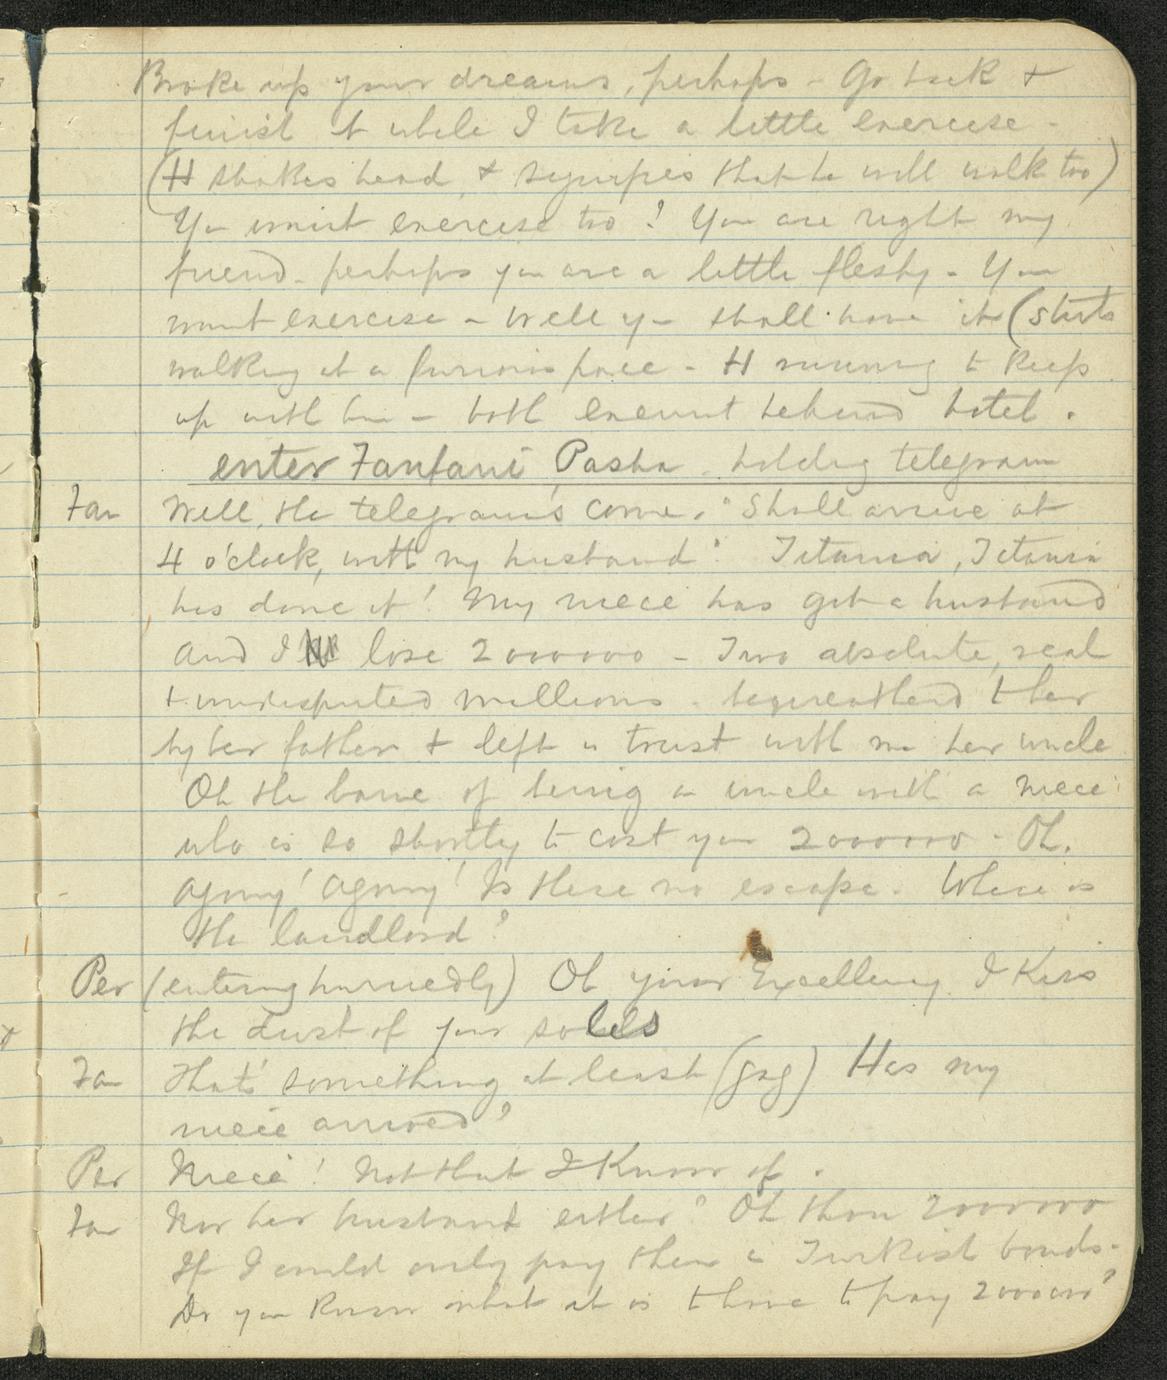 Broke up your dreams, perhaps - Go back &
finish it while I take a little exercise -
(H shakes head, & signifies that he will walk too)
You want exercise too! You are right my
friend - perhaps you are a little fleshy - You
want exercise - Well you shall have it (starts
walking at a furious pace - H running to keep
up with him - both exeunt behind hotel.
enter Fanfani Pasha - holding telegram
Fan Well, the telegram's come. "Shall arrive at
4 o'clock, with my husband". Titania, Titania
has done it! My niece has got a husband
and I lose 2000000 - Two absolute, real
& undisputed millions - bequeathed to her
by her father & left in trust with me her uncle
Oh the bane of being an uncle with a niece
who is so shortly to cost you 2000000 - Oh,
Agony! Agony! Is there no escape. Where is
the landlord?
Per (entering hurriedly) Oh your Excellency I kiss
the dust of your soles
Fan That's something at least (gag) Has my
niece arrived?
Per Niece! Not that I know of.
Fan Nor her husband either? Oh thou 2000000
If I could only pay them in Turkish bonds -
Do you know what it is to have to pay 2000000?